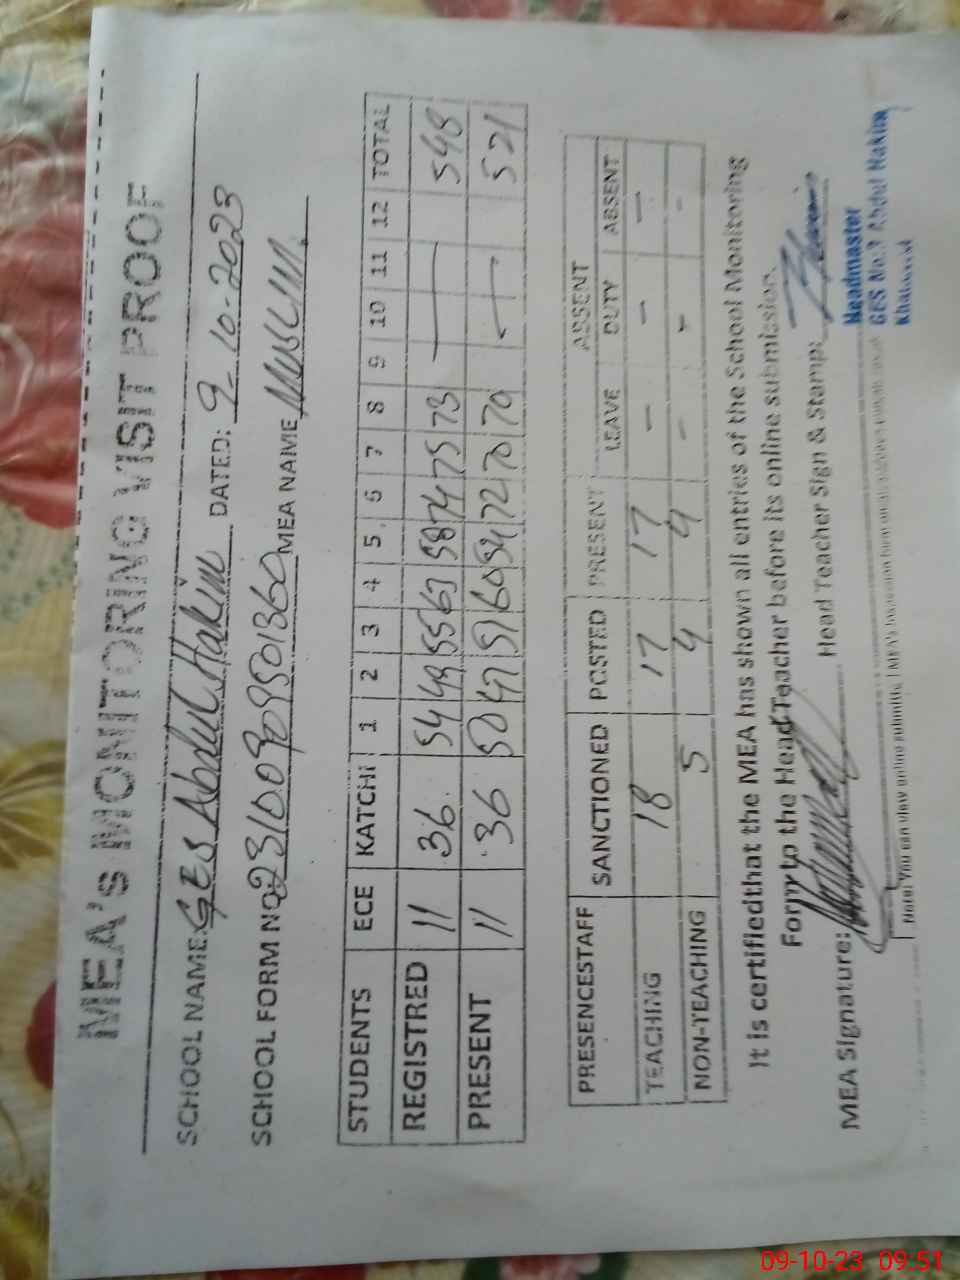 MEA's MONITORING VISIT PROOF
SCHOOL NAME: GES Abdul Hakim DATED: 9-10-2023
SCHOOL FORM NO. MEA NAME Muslim
STUDENTS ECE KATCHI 1 2 3 4 5 6 7 8 9 10 11 12 TOTAL
REGISTRED 11 36 54 49 55 63 58 74 75 73 548
PRESENT 11 36 50 47 51 60 54 72 70 70 521
ABSENT
PRESENCESTAFF SANCTIONED POSTED PRESENT LEAVE DUTY ABSENT
TEACHING 18 17 17 - - -
NON-TEACHING 5 4 4 - - -
It is certifiedthat the MEA has shown all entries of the School Monitoring
Form to the Head Teacher before its online submission.
MEA Signature: Head Teacher Sign & Stamp:
Headmaster
GES No.1 Abdul Hakim
Note: You can view online submitted
09-10-23 09:51